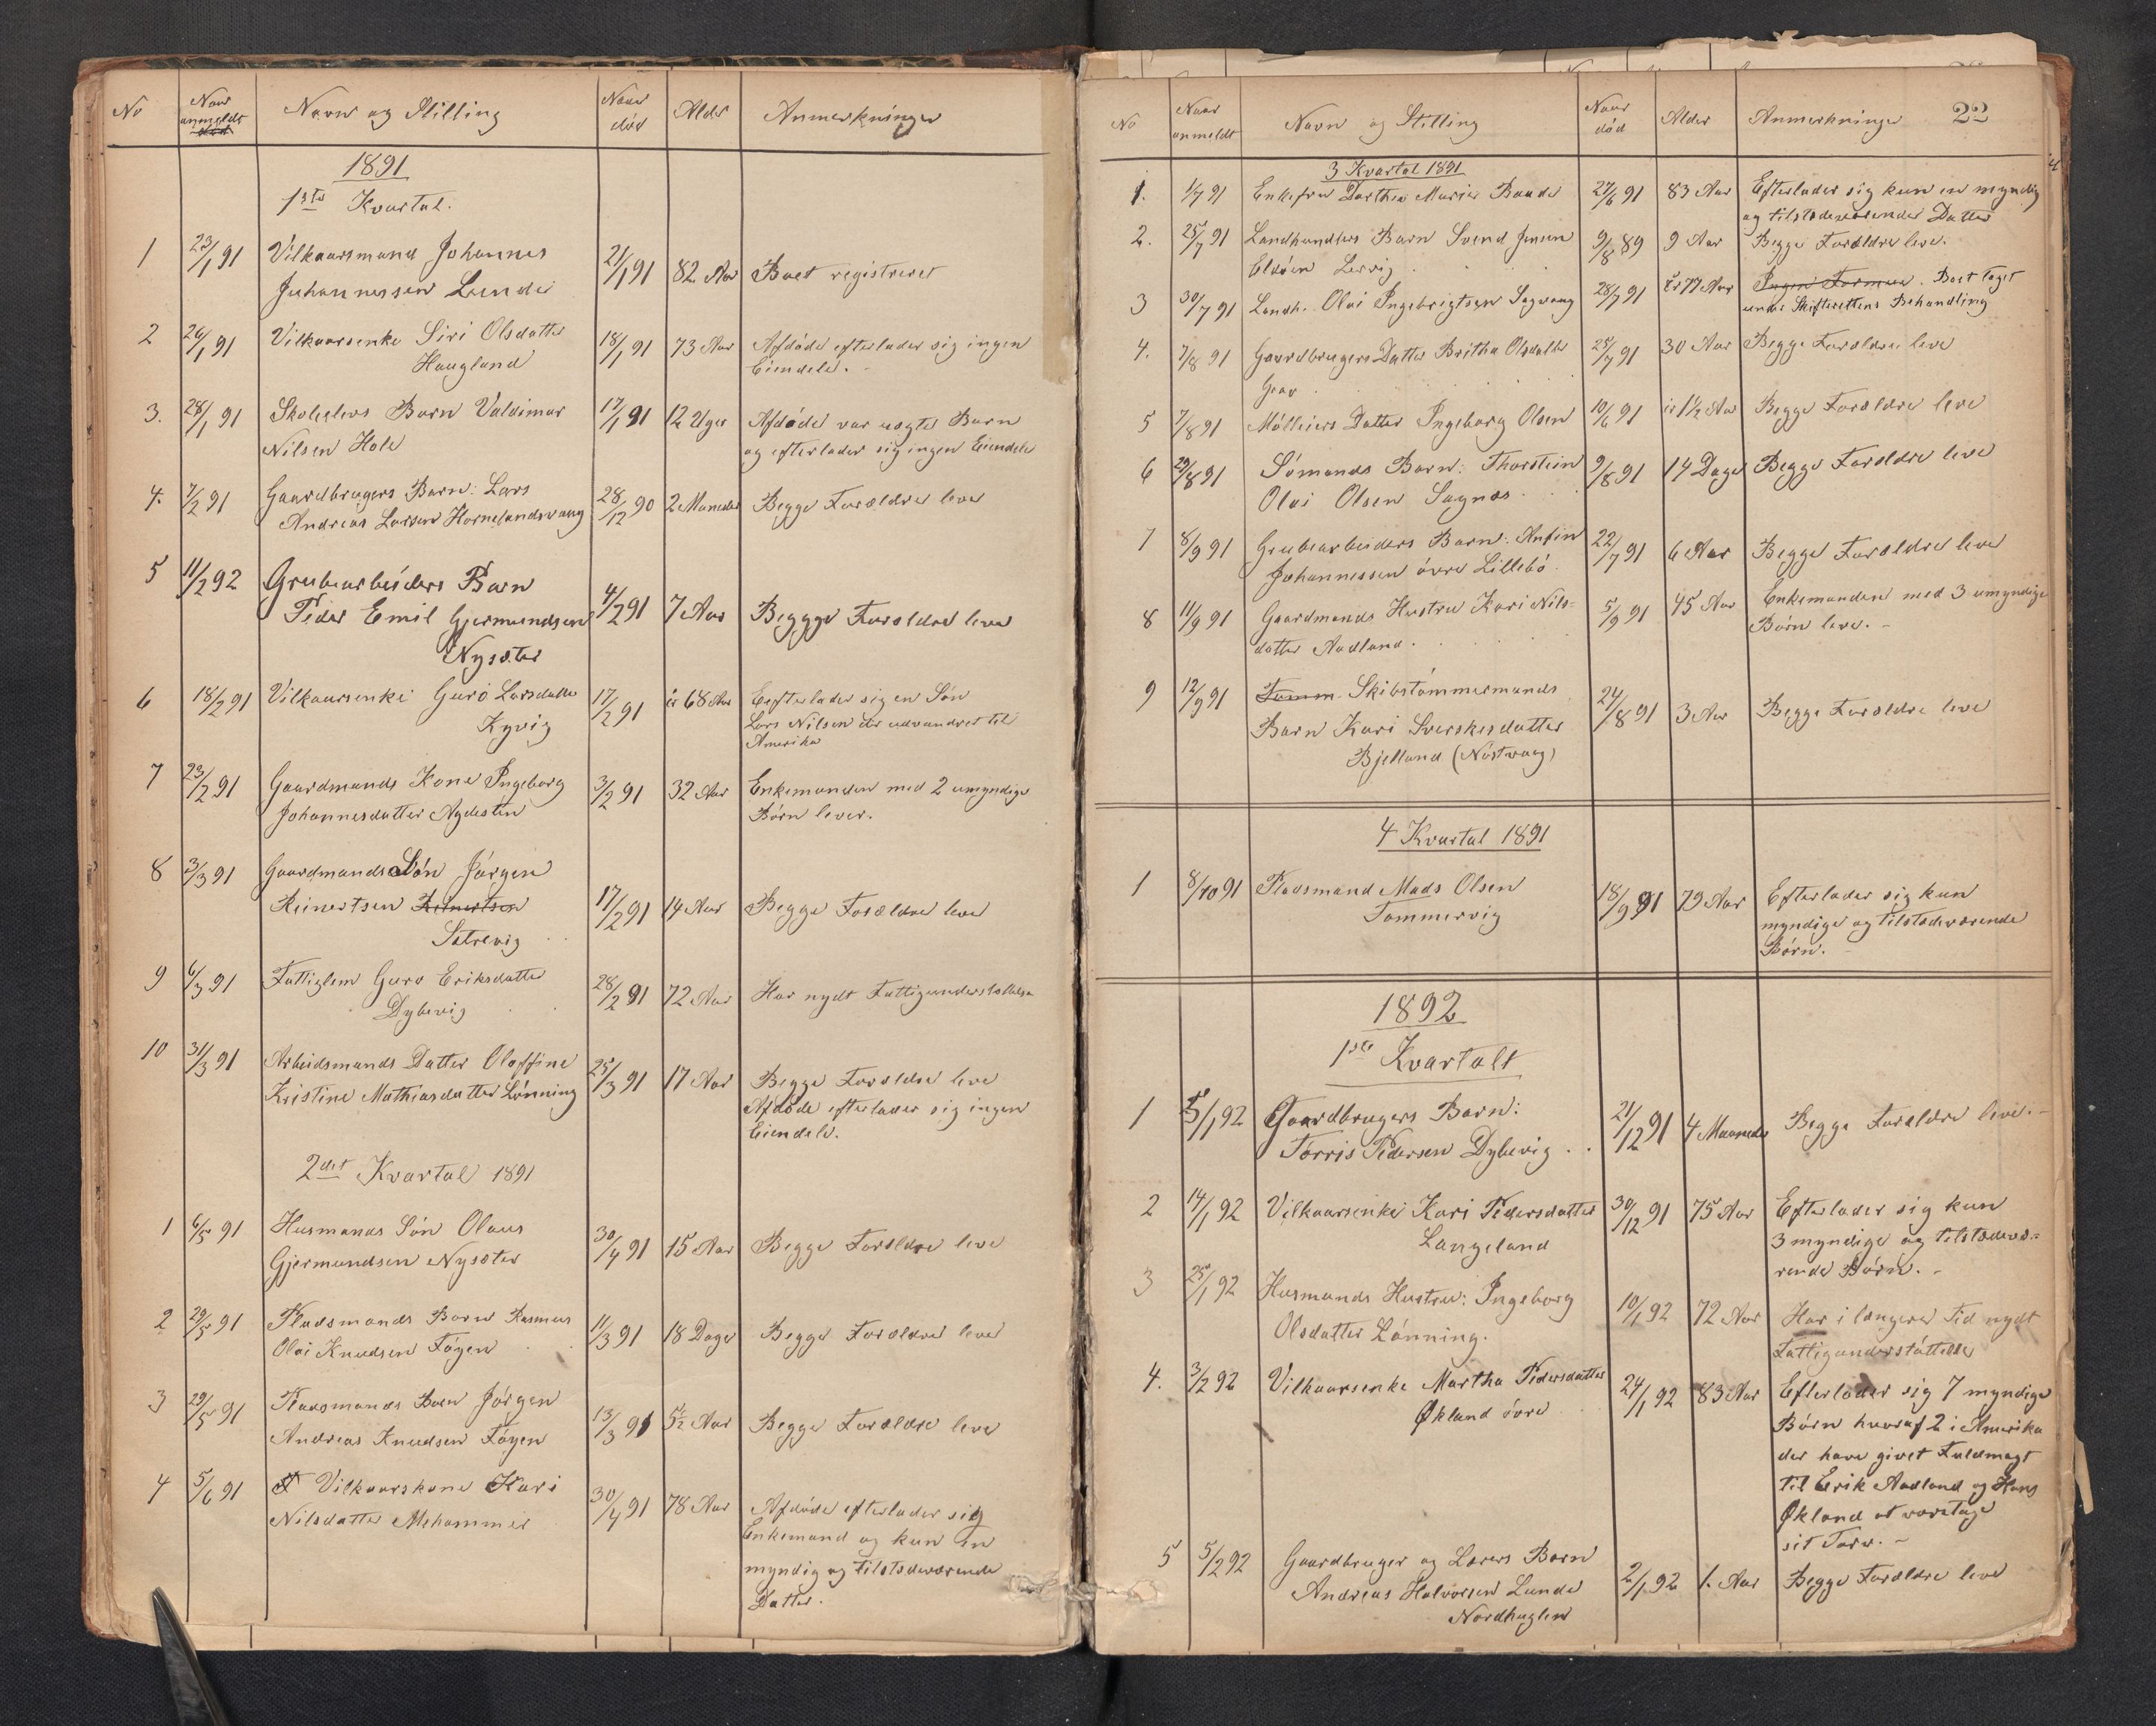 No Naar anmeldt ~~død~~ Navn og Stilling Naar død Alder Anmerkninger
1891
1ste Kvartal.
1 23/1 91 Vilkaarsmand Johannes 21/1 91 82 Aar Boet registreret
Johannessen Lunde
2 26/1 91 Vilkaarsenke Siri Olsdatter 18/1 91 73 Aar Afdøde efterlader sig ingen
Haugland Eiendele. -
3. 28/1 91 Skoleelevs Barn Valdimar 17/1 91 12 Uger Afdøde var uægte Barn
Nilsen Hole og efterlader sig ingen Eiendele
4. 7/2 91 Gaardbrugers Barn: Lars 28/12 90 2 Maneder Begge Forældre lever
Andreas Larsen Hornelandsvaag
5 11/2 92 Grubearbeiders Barn 4/2 91 7 Aar Beggge Forældre lever
Peder Emil Gjermundsen
Nysæter
6 18/2 91 Vilkaarsenke Guro Larsdatter 17/2 91 ir 68 Aar Eefterlader sig en Søn
Kyvig Lars Nilsen der udvandret til
Amerika
7 23/2 91 Gaardmands Kone Ingeborg 3/2 91 32 Aar Enkemanden med 2 umyndige
Johannesdatter Agdesten Børn lever.
8 3/3 91 Gaardmands Søn Jørgen 17/2 91 14 Aar Begge Forældre lever
Reinertsen ~~Reinertsen~~
Sætrevig
9 6/3 91 Fattiglem Guro Eriksdatter 28/2 91 72 Aar Har nydt Fattigunderstøttelse
Dybevig
10 31/3 91 Arbeidsmands Datter Oloffine 25/3 91 17 Aar Begge Forældre leve
Kristine Mathiasdatter Lønning Afdøde efterlader sig ingen
Eiendele.
2det Kvartal 1891
1 6/5 91 Husmands Søn Olaus 30/4 91 15 Aar Begge Forældre leve
Gjermundsen Nysæter
2 29/5 91 Pladsmands Barn Rasmus 11/3 91 18 Dage Begge Forældre lever
Olai Knudsen Føyen
3 29/5 91 Pladsmands Barn Jørgen 13/3 91 Aar Begge Forældre leve
Andreas Knudsen Føyen
4 5/6 91 Vilkaarskone Kari 30/4 91 78 Aar Afdøde efterlader sig
Nilsdatter Mehammer Enkemand og kun en
myndig og tilstedeværende
Datter.
No Naar anmeldt Navn og Stilling Naar død Alder Anmerkninger 22
3 Kvartal 1891
1. 1/7 91 Enkefru Dorthea Marie Baade 27/6 91 83 Aar Efterlader sig kun en myndig
og tilstedeværende Datter
2. 25/7 91 Landhandlers Barn Svend Jensen 9/8 89 9 Aar Begge Forældre leve.
Eldøen Lervig
3 30/7 91 Landh. Olai Ingebrigtsen Sagvaag 28/7 91 ir 77 Aar ~~Ingen Formue~~. Boet taget
under Skifterettens Behandling
4. 7/8 91 Gaardbrugers Datter Britha Olsdatter 25/7 91 30 Aar Begge Forældre leve
Grov
5 7/8 91 Møllers Datter Ingeborg Olsen 10/6 91 ir 1½ Aar Begge Forældre leve
6 29/8 91 Sømands Barn: Thorstein 9/8 91 14 Dage Begge Forældre leve
Olai Olsen Sagnæs
7 8/9 91 Grubearbeiders Barn: Anfin 22/7 91 6 Aar Begge Forældre leve
Johannessen øvre Lillebø.
8 11/9 91 Gaardmands Hustru Kari Nils- 5/9 91 45 Aar Enkemanden med 3 umyndige
datter Aadland. Børn leve. -
9 12/9 91 ~~Tømm~~ Skibstømmermands 24/8 91 3 Aar Begge Forældre leve
Barn Kari Sverkesdatter
Bjelland (Nøstvaag)
4 Kvartal 1891
1 8/10 91 Pladsmand Mads Olsen 18/9 91 79 Aar Efterlader sig kun
Tømmervig myndige og tilstedeværende
Børn.
1892
1ste Kvartalt
1 5/1 92 Gaardbrugers Barn: 21/12 91 4 Maaneder Begge Forældre leve. -
Tørris Pedersen Dybevig
2 14/1 92 Vilkaarsenke Kari Pedersdatter 30/12 91 75 Aar Efterlader sig kun
Langeland 3 myndige og tilstedevæ-
rende Børn. -
3 25/1 92 Husmands Hustru: Ingeborg 10/1 92 72 Aar Har i længere Tid nydt
Olsdatter Lønning. Fattigunderstøttelse
4. 3/2 92 Vilkaarsenke Martha Pedersdatter 24/1 92 83 Aar Efterlader sig 7 myndige
Økland øvre Børn hvoraf 2 i Amerika
der have givet Fuldmagt
til Erik Aadland og Hans
Økland at varetage
sit Tarv. -
5 5/2 92 Gaardbruger og Lærers Barn 2/1 92 1. Aar Begge Forældre leve
Andreas Halvorsen Lunde
Nordhuglen